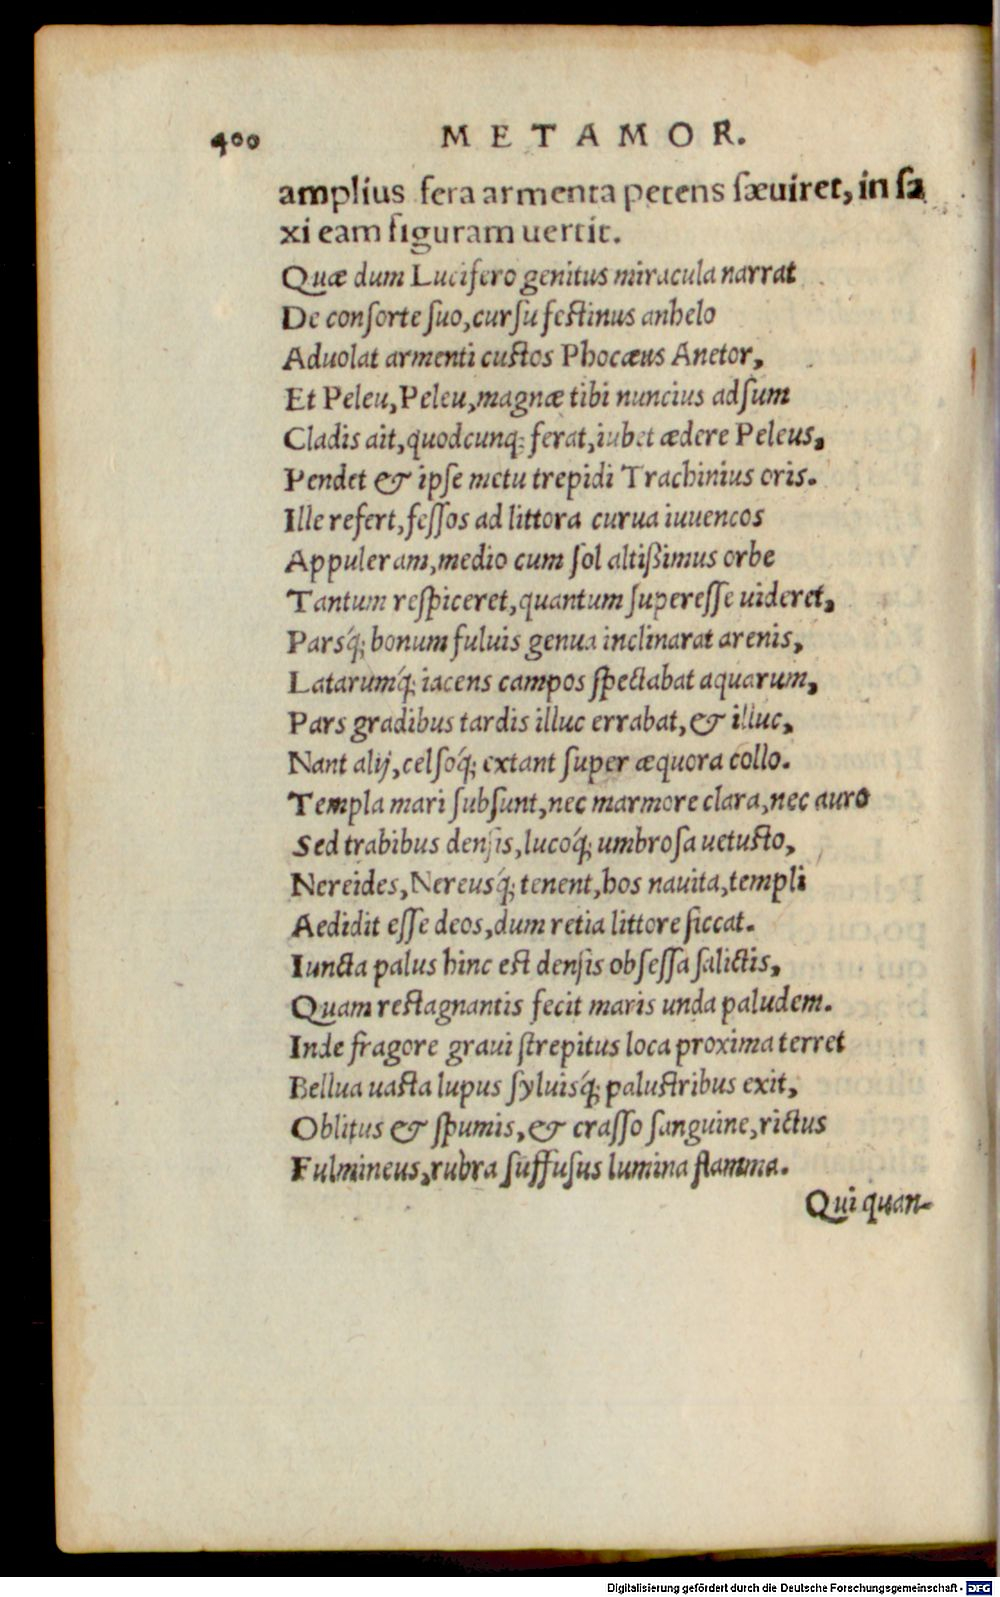 400 METAMOR.
amplius fera armenta petens sæuiret, in sa
xi eam figuram uertit.
Quæ dum Lucifero genitus miracula narrat
De consorte suo, cursu festinus anhelo
Aduolat armenti custos Phocæus Anetor,
Et Peleu, Peleu, magnæ tibi nuncius adsum
Cladis ait, quodcunq; ferat, iubet ædere Peleus,
Pendet & ipse metu trepidi Trachinius oris.
Ille refert, fessos ad littora curua iuuencos
Appuleram, medio cum sol altißimus orbe
Tantum respiceret, quantum superesse uideret,
Parsq́; bonum fuluis genua inclinarat arenis,
Latarumq́; iacens campos spectabat aquarum,
Pars gradibus tardis illuc errabat, & illuc,
Nant alij, celsoq́; extant super æquora collo.
Templa mari subsunt, nec marmore clara, nec auro
Sed trabibus densis, lucoq́; umbrosa uetusto,
Nereides, Nereusq́; tenent, hos nauita, templi
Aedidit esse deos, dum retia littore siccat.
Iuncta palus hinc est densis obsessa salictis,
Quam restagnantis fecit maris unda paludem.
Inde fragore graui strepitus loca proxima terret
Bellua uasta lupus syluisq́; palustribus exit,
Oblitus & spumis, & crasso sanguine, rictus
Fulmineus, rubra suffusus lumina flamma.
Qui quan-
Digitalisierung gefördert durch die Deutsche Forschungsgemeinschaft - DFG